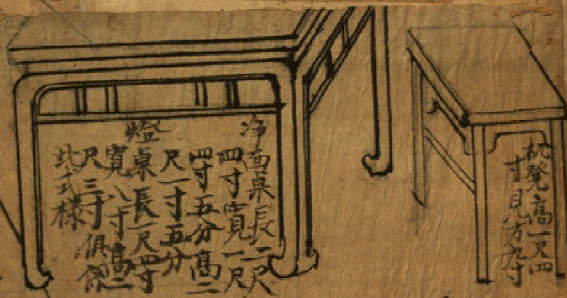 杌凳高一尺四
寸見方九寸
净面桌長二尺
四寸寬一尺
四寸五分高二
尺一寸五分
燈桌長一尺四寸
寬八寸高二
尺三寸俱係
此式樣